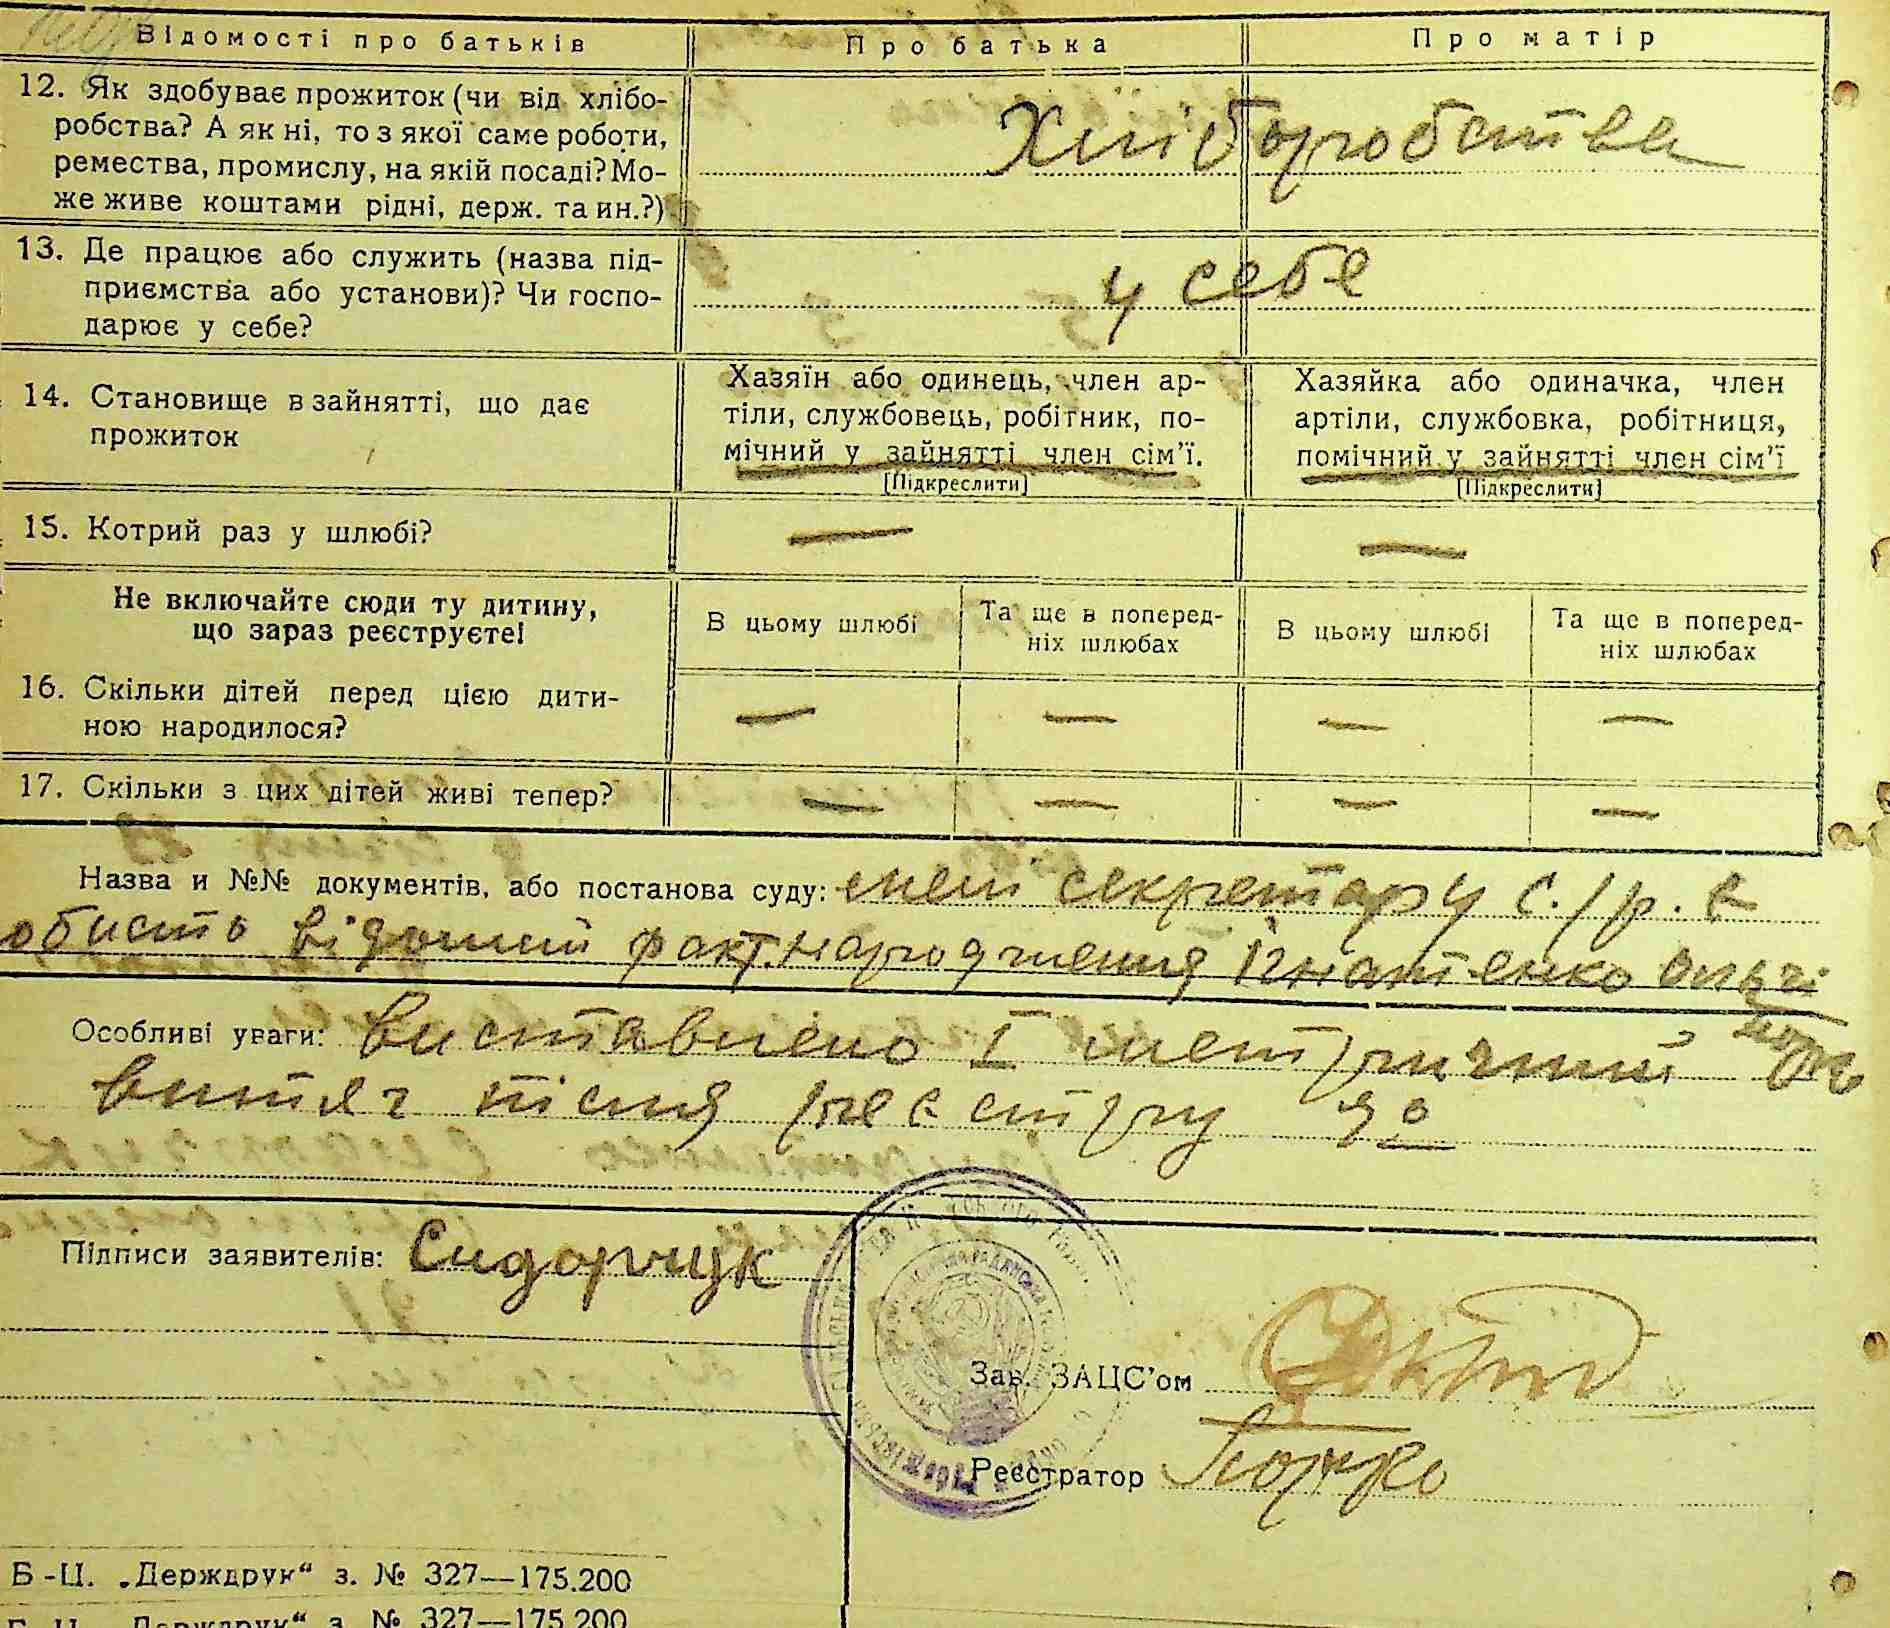 Відомості про батьків
Про батька
Про матір
12. Як здобуває прожиток (чи від хлібо-
робства? А як ні, то з якої саме роботи,
ремества, промислу, на якій посаді? Мо-
же живе коштами рідні, держ. та ин.?)
Хліборобства
13. Де працює або служить (назва під-
приємства або установи)? Чи госпо-
дарює у себе?
у себе
14. Становище в зайнятті, що дає
прожиток
Хазяїн або одинець, член ар-
тіли, службовець, робітник, по-
мічний у зайнятті член сім'ї.
[Підкреслити]
Хазяйка або одиначка, член
артіли, службовка, робітниця,
помічний у зайнятті член сім'ї
[Підкреслити]
15. Котрий раз у шлюбі?
— —
Не включайте сюди ту дитину,
що зараз реєструєте!
В цьому шлюбі
Та ще в поперед-
ніх шлюбах
В цьому шлюбі
Та ще в поперед-
ніх шлюбах
16. Скільки дітей перед цією дити-
ною народилося?
— — — —
17. Скільки з цих дітей живі тепер?
— — — —
Назва и №№ документів, або постанова суду: мені секретару с./р. є
обисто відомий факт народження Ігнатенко Ользі
Особливі уваги: Виставлено I метричний
витяг після реєстру
Підписи заявителів: Сидорчук
Зав. ЗАЦС'ом
Реєстратор
Б-Ц. „Держдрук“ з. № 327—175.200
Б-Ц. „Держдрук“ з. № 327—175.200